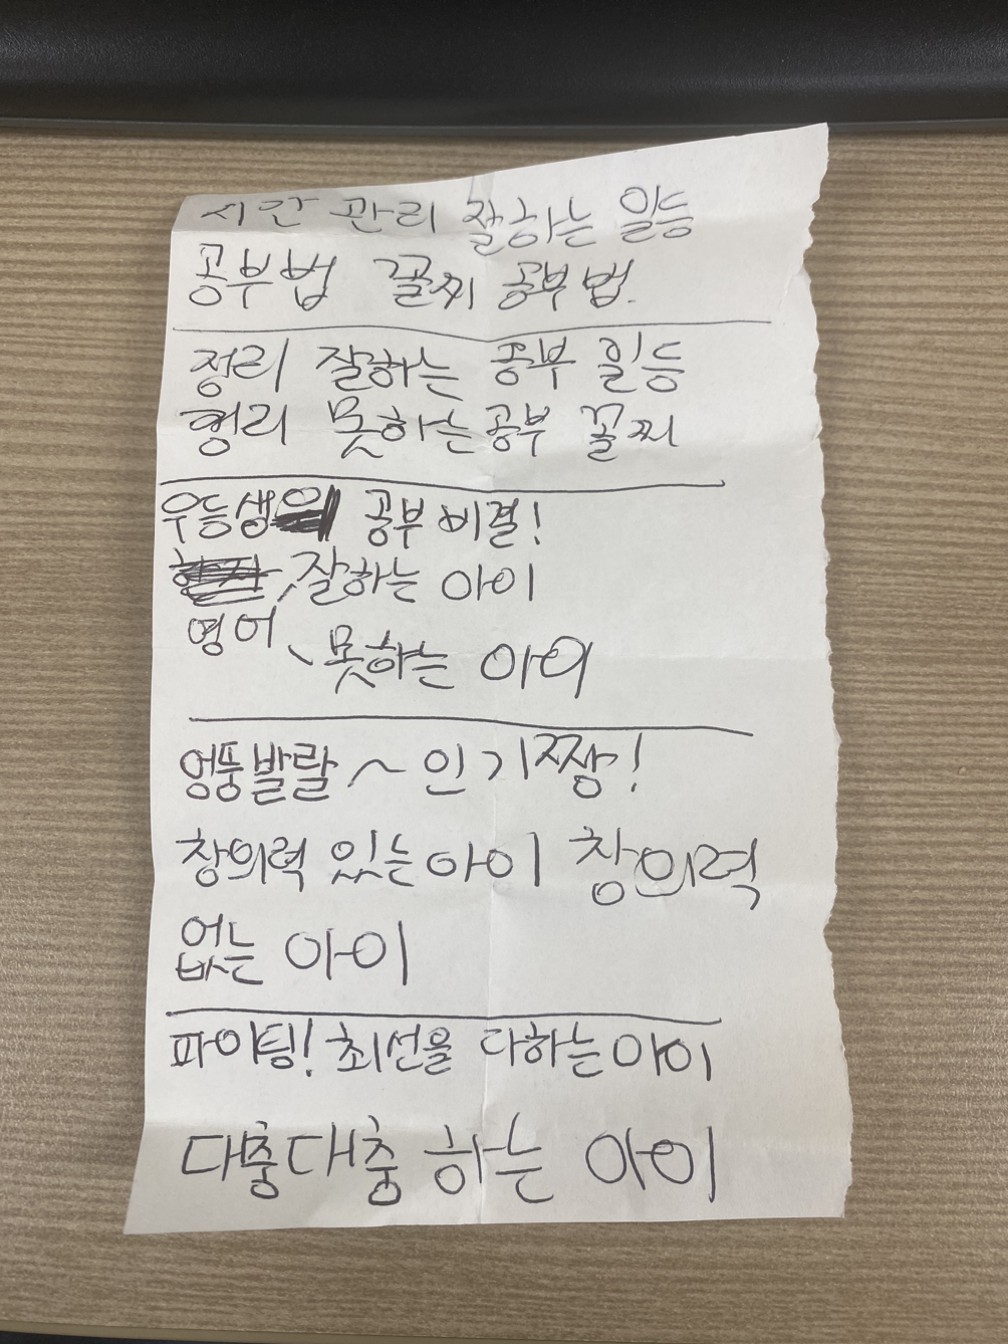 시간 관리 잘하는 일등
공부법 꼴찌 공부법.
정리 잘하는 공부 일등
정리 못하는 공부 꼴찌
우등생 공부 비결!
잘하는 아이
영어
못하는 아이
엉뚱발랄~인기짱!
창의력 있는 아이 창의력
없는 아이
파이팅! 최선을 다하는 아이
대충대충 하는 아이